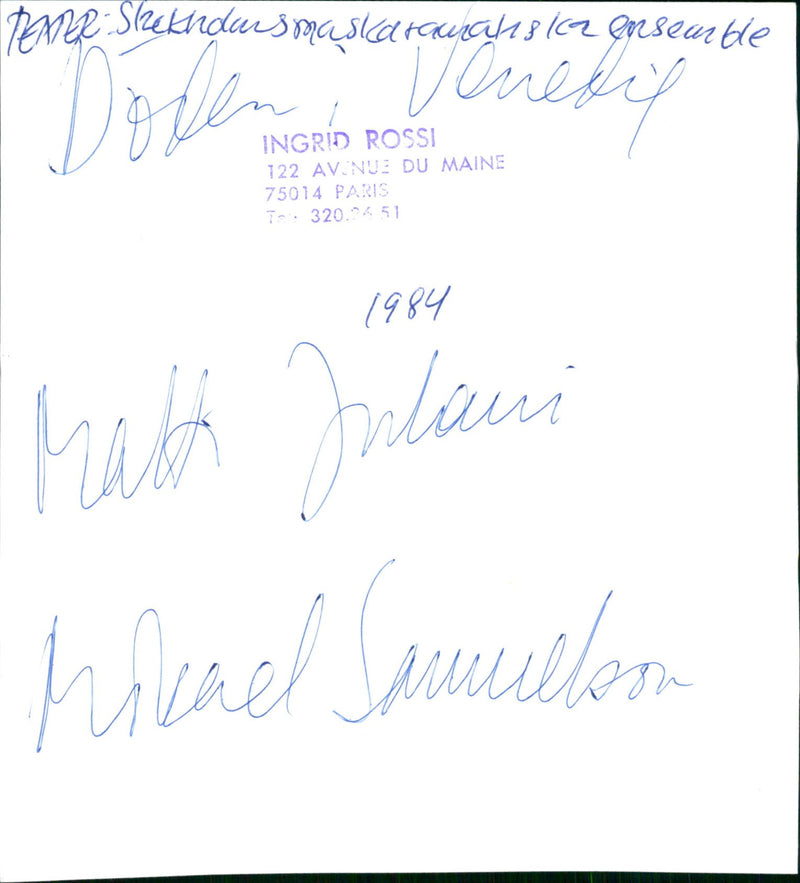 TEATER: Stockholms musikdramatiska ensemble
Döden i Venedig
INGRID ROSSI
122 AVENUE DU MAINE
75014 PARIS
320.26 51
1984
Matti Juhani
Mikael Samuelson